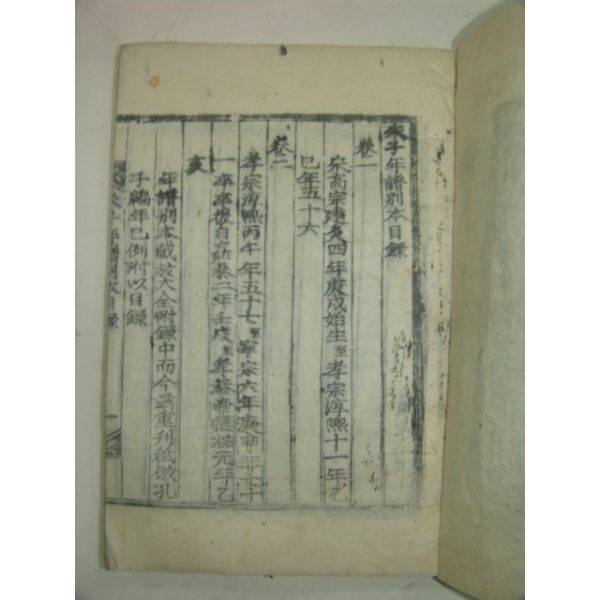 朱子年譜別本目錄
卷一
宋高宗建炎四年庚戌始生至孝宗淳熙十一年乙
巳年五十六
卷二
孝宗淳熙丙午年五十七至寧宗六年庚申年七十
一卒卒後自嘉定二年壬戌至恭帝德祐元年乙
亥
年譜別本載於大全附錄中而今爲重刊秪倣孔
子編年已例附以目錄
朱子年譜別本目錄